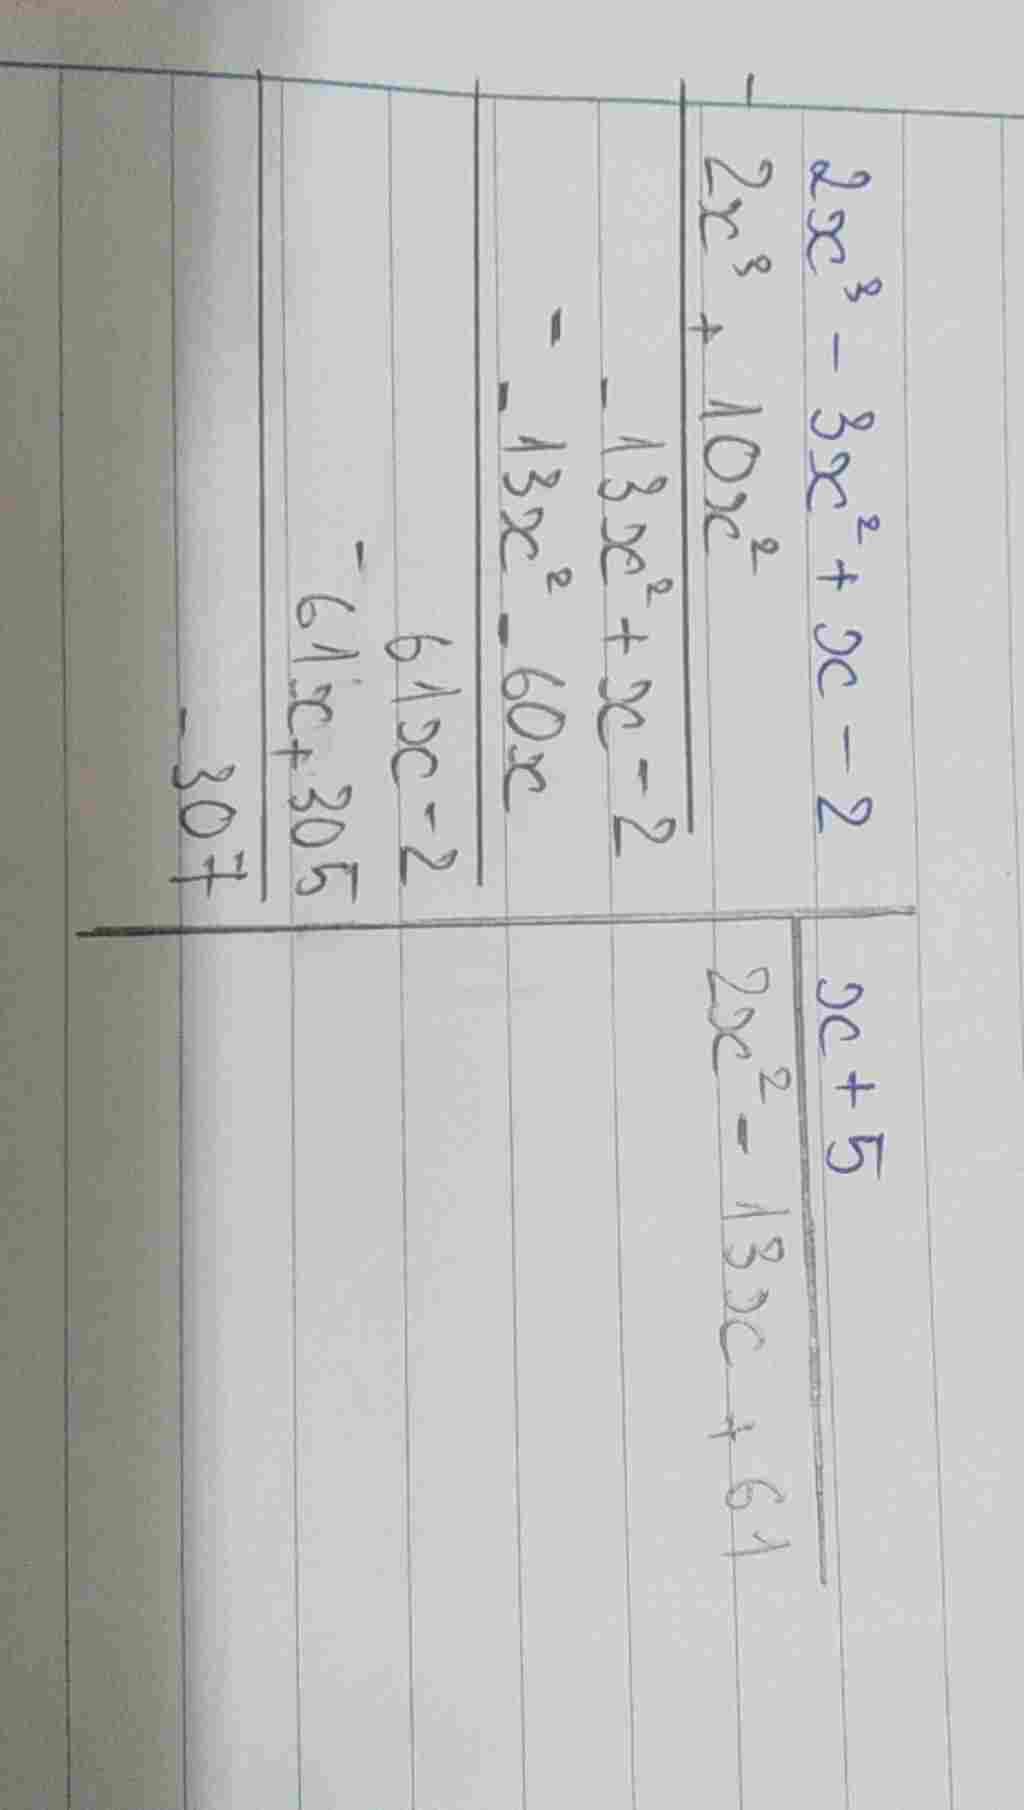 2x³ - 3x² + x - 2 | x + 5
-
2x³ + 10x² | 2x² - 13x + 61
-13x² + x - 2
-
-13x² - 60x
61x - 2
-
61x + 305
-307